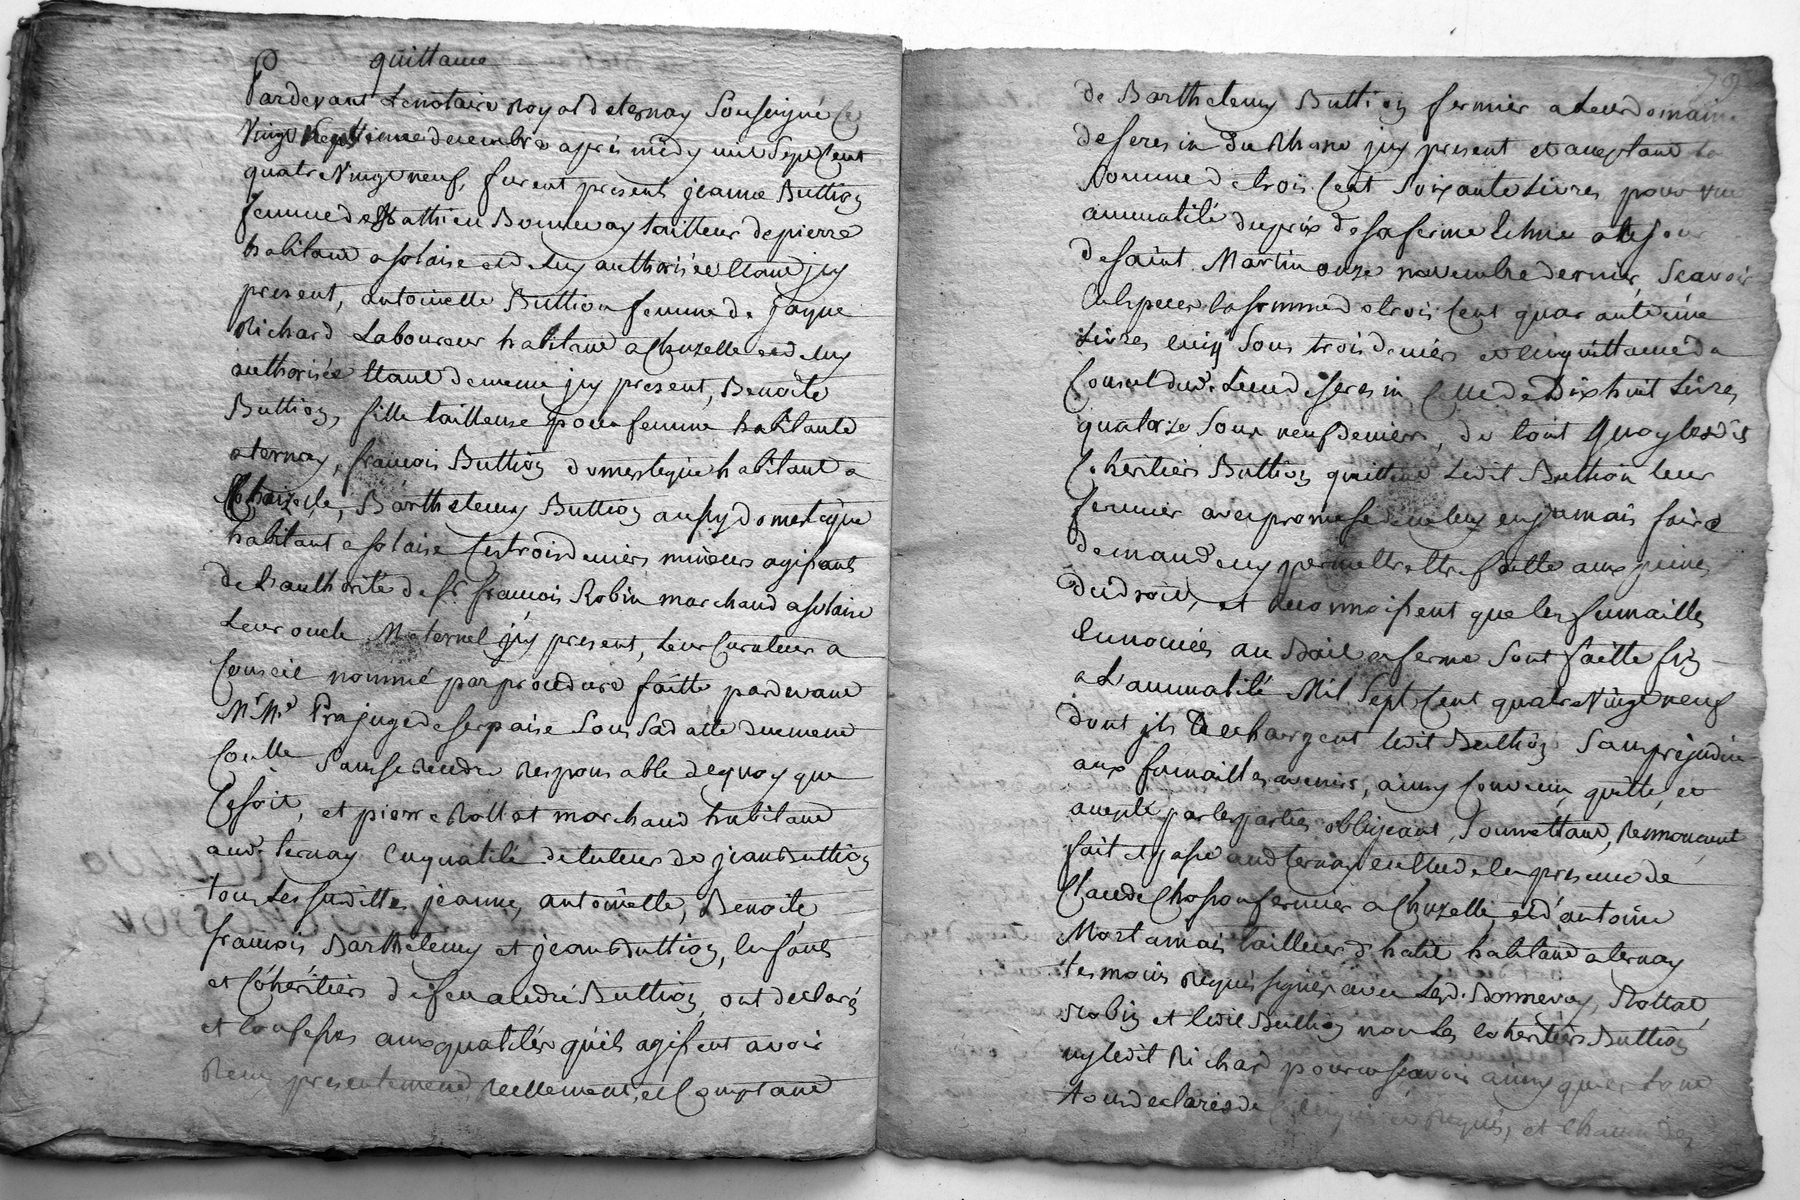 quittance
Pardevant Le notaire Royal de ternay Soussigné Ce
Vingt Septieme decembre aprés midy mil Sept Cent
quatre Vingt neuf, furent present jeanne Buttion
femme de Mathieu Bonnevay tailleur de pierre
habitant a solaise et de luy authorisée Etant jcy
present, antoinette Buttion femme de jaque
Richard Laboureur habitant a Chuzelle et de luy
authorisée Etant de meme jcy present, Benoite
Buttion, fille tailleuse pour femme habitante
a ternay, françois Buttion domestique habitant a
Barthelemy Buttion aussy domestique
habitant a solaise Ces trois derniers mineurs agissant
de L'authorité de Sr françois Robin marchand a solaise
Leur oncle Maternel jcy present, Leur Curateur a
Conseil nommé par procedure faitte pardevant
Mr Me Pra juge de serpaise Sous Sa datte duement
Conllé Sans se Rendre Responsable de quoy que
Ce soit, et pierre Rollat marchand habitant
aud. ternay En qualité de tuteur de jean Buttion
tous Les suditte jeanne, antoinette, Benoite
françois Barthelemy et jean Buttion, Enfants
et Cohéritiers de feu andré Buttion, ont declaré
et Confessé aux qualités qu'ils agissent avoir
Reçu presentement, Réellement, et Comptant
79
de Barthelemy Buttion fermier a Leur domaine
de seresin du Rhone jcy present et acceptant la
Somme de trois Cent Soixante Livres pour une
annuatité du prix de sa ferme Echue a la jour
de saint Martin onze novembre dernier, Scavoir
En Especes la somme de trois Cent quarante une
Livres cinq Sous trois deniers et En quittance de
Consul dud. Lieu de seresin Celle de Dixhuit Livres
quatorze Sous neuf deniers, de tout quoy lesdits
Cohéritiers Buttion quittent Ledit Buttion leur
fermier avec promesse de ne luy en jamais faire
demande ny permettre Etre faitte aux peines
du droit, et Reconnoissent que les semailles
Ennoncées au Bail a ferme Sont faitte
a L'annuatité Mil Sept Cent quatre Vingt neuf
dont jls dechargent ledit Buttion Sans prejudice
aux semailles a venir, ainsy Convenu, quitte, et
accepté par les parties obligeant, Soumettant, Renonçant
fait et passé aud ternay en Etude En presence de
Claude Chosson fermier a Chuzelle et d'antoine
Martamais tailleur d'habit habitant a ternay
temoins Requis signés avec Lesd. Bonnevay, Rollat,
Robin et ledit Buttion non Les Cohéritiers Buttion
ny ledit Richard pour ne scavoir ainsy qu'ils ont
tous declarés de Ce Enquis et Requis, et Chacun des